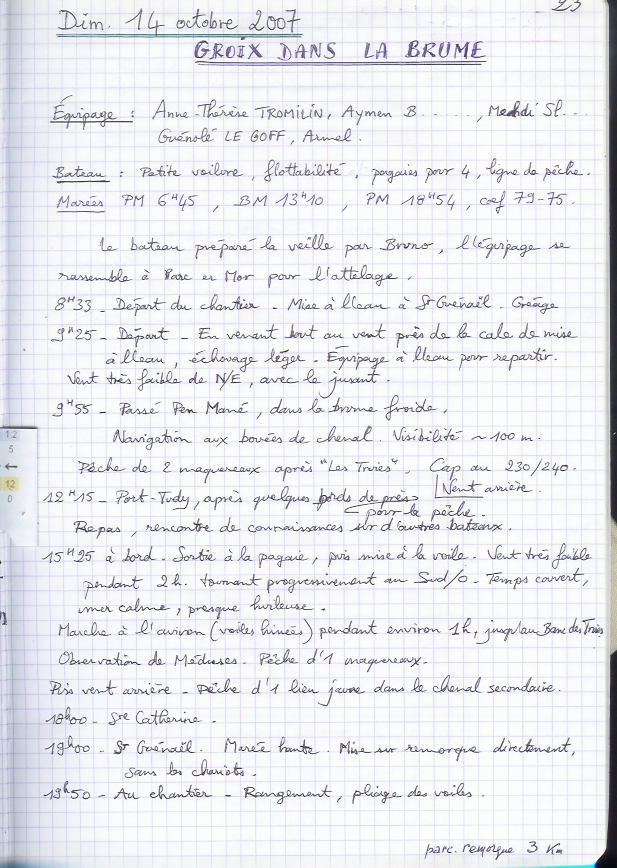 23
Dim. 14 octobre 2007
GROIX DANS LA BRUME
Équipage : Anne-Thérèse TROMILIN, Aymen B......, Mehdi Sl...
Guénolé LE GOFF, Armel.
Bateau : Petite voilure, flottabilité, pagaies pour 4, ligne de pêche.
Marées PM 6H45, BM 13H10, PM 18H54, coef 79-75.
Le bateau préparé la veille par Bruno, l'équipage se
rassemble à Parc er Mor pour l'attelage.
8H33 - Départ du chantier - Mise à l'eau à St Guénaël. Gréage
9H25 - Départ - En venant bout au vent près de la cale de mise
à l'eau, échouage léger. Équipage à l'eau pour repartir.
Vent très faible de N/E, avec le jusant.
9H55 - Passé Pen Mané, dans la brume froide.
Navigation aux bouées de chenal. Visibilité ~ 100 m.
Pêche de 2 maquereaux après "Les Truies". Cap au 230/240.
Vent arrière.
12H15 - Port-Tudy, après quelques bords de près
pour la pêche.
Repas, rencontre de connaissances sur d'autres bateaux.
15H25 à bord. Sortie à la pagaie, puis mise à la voile. Vent très faible
pendant 2h. tournant progressivement au Sud/O - Temps couvert,
mer calme, presque huileuse.
Marche à l'aviron (voiles hissées) pendant environ 1h, jusqu'au Banc des Truies
Observation de Méduses. Pêche d'1 maquereaux.
Puis vent arrière - Pêche d'1 lieu jaune dans le chenal secondaire.
18h00 - Ste Catherine.
19h00 - St Guénaël. Marée haute. Mise sur remorque directement,
sans les chariots.
19h50 - Au chantier - Rangement, pliage des voiles.
parc. remorque 3 Km
12
5
←
12
0